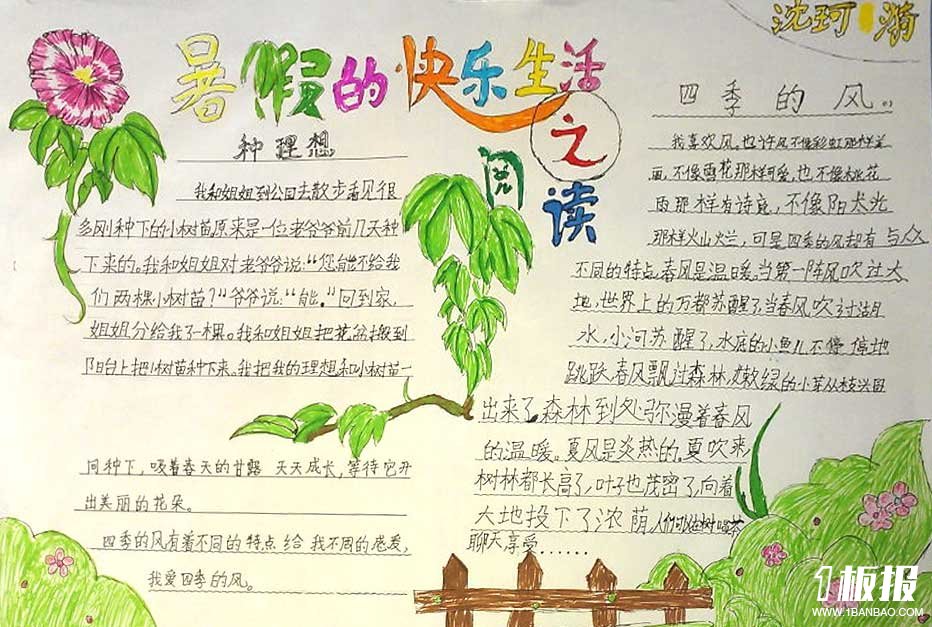 沈珂 漪
暑假的快乐生活
之
阅
读
种理想
我和姐姐到公园去散步看见很
多刚种下的小树苗原来是一位老爷爷前几天种
下来的。我和姐姐对老爷爷说:“您能不给我
们两棵小树苗?”爷爷说:“能。”回到家,
姐姐分给我了一棵。我和姐姐把花盆搬到
阳台上把小树苗种下来。我把我的理想和小树苗一
同种下,吸着春天的甘露 天天成长,等待它开
出美丽的花朵。
四季的风有着不同的特点 给 我不同的感受,
我爱四季的风。
四季的风。
我喜欢风。也许风不像彩虹那样美
丽,不像雪花那样可爱,也不像桃花
雨那样有诗意,不像阳光
那样火山烂,可是四季的风却有与众
不同的特点,春风是温暖,当第一阵风吹过大
地,世界上的万都苏醒了,当春风吹过湖
水,小河苏醒了,水底的小鱼儿不停 停地
跳跃,春风飘过森林,嫩绿的小芽从枝
出来了,森林到处弥漫着春风
的温暖。夏风是炎热的,夏吹来,
树林都长高了,叶子也茂密了,向着
大地投下了浓荫,人们可以在树
聊天享受……
1板报
WWW.1BANBAO.COM